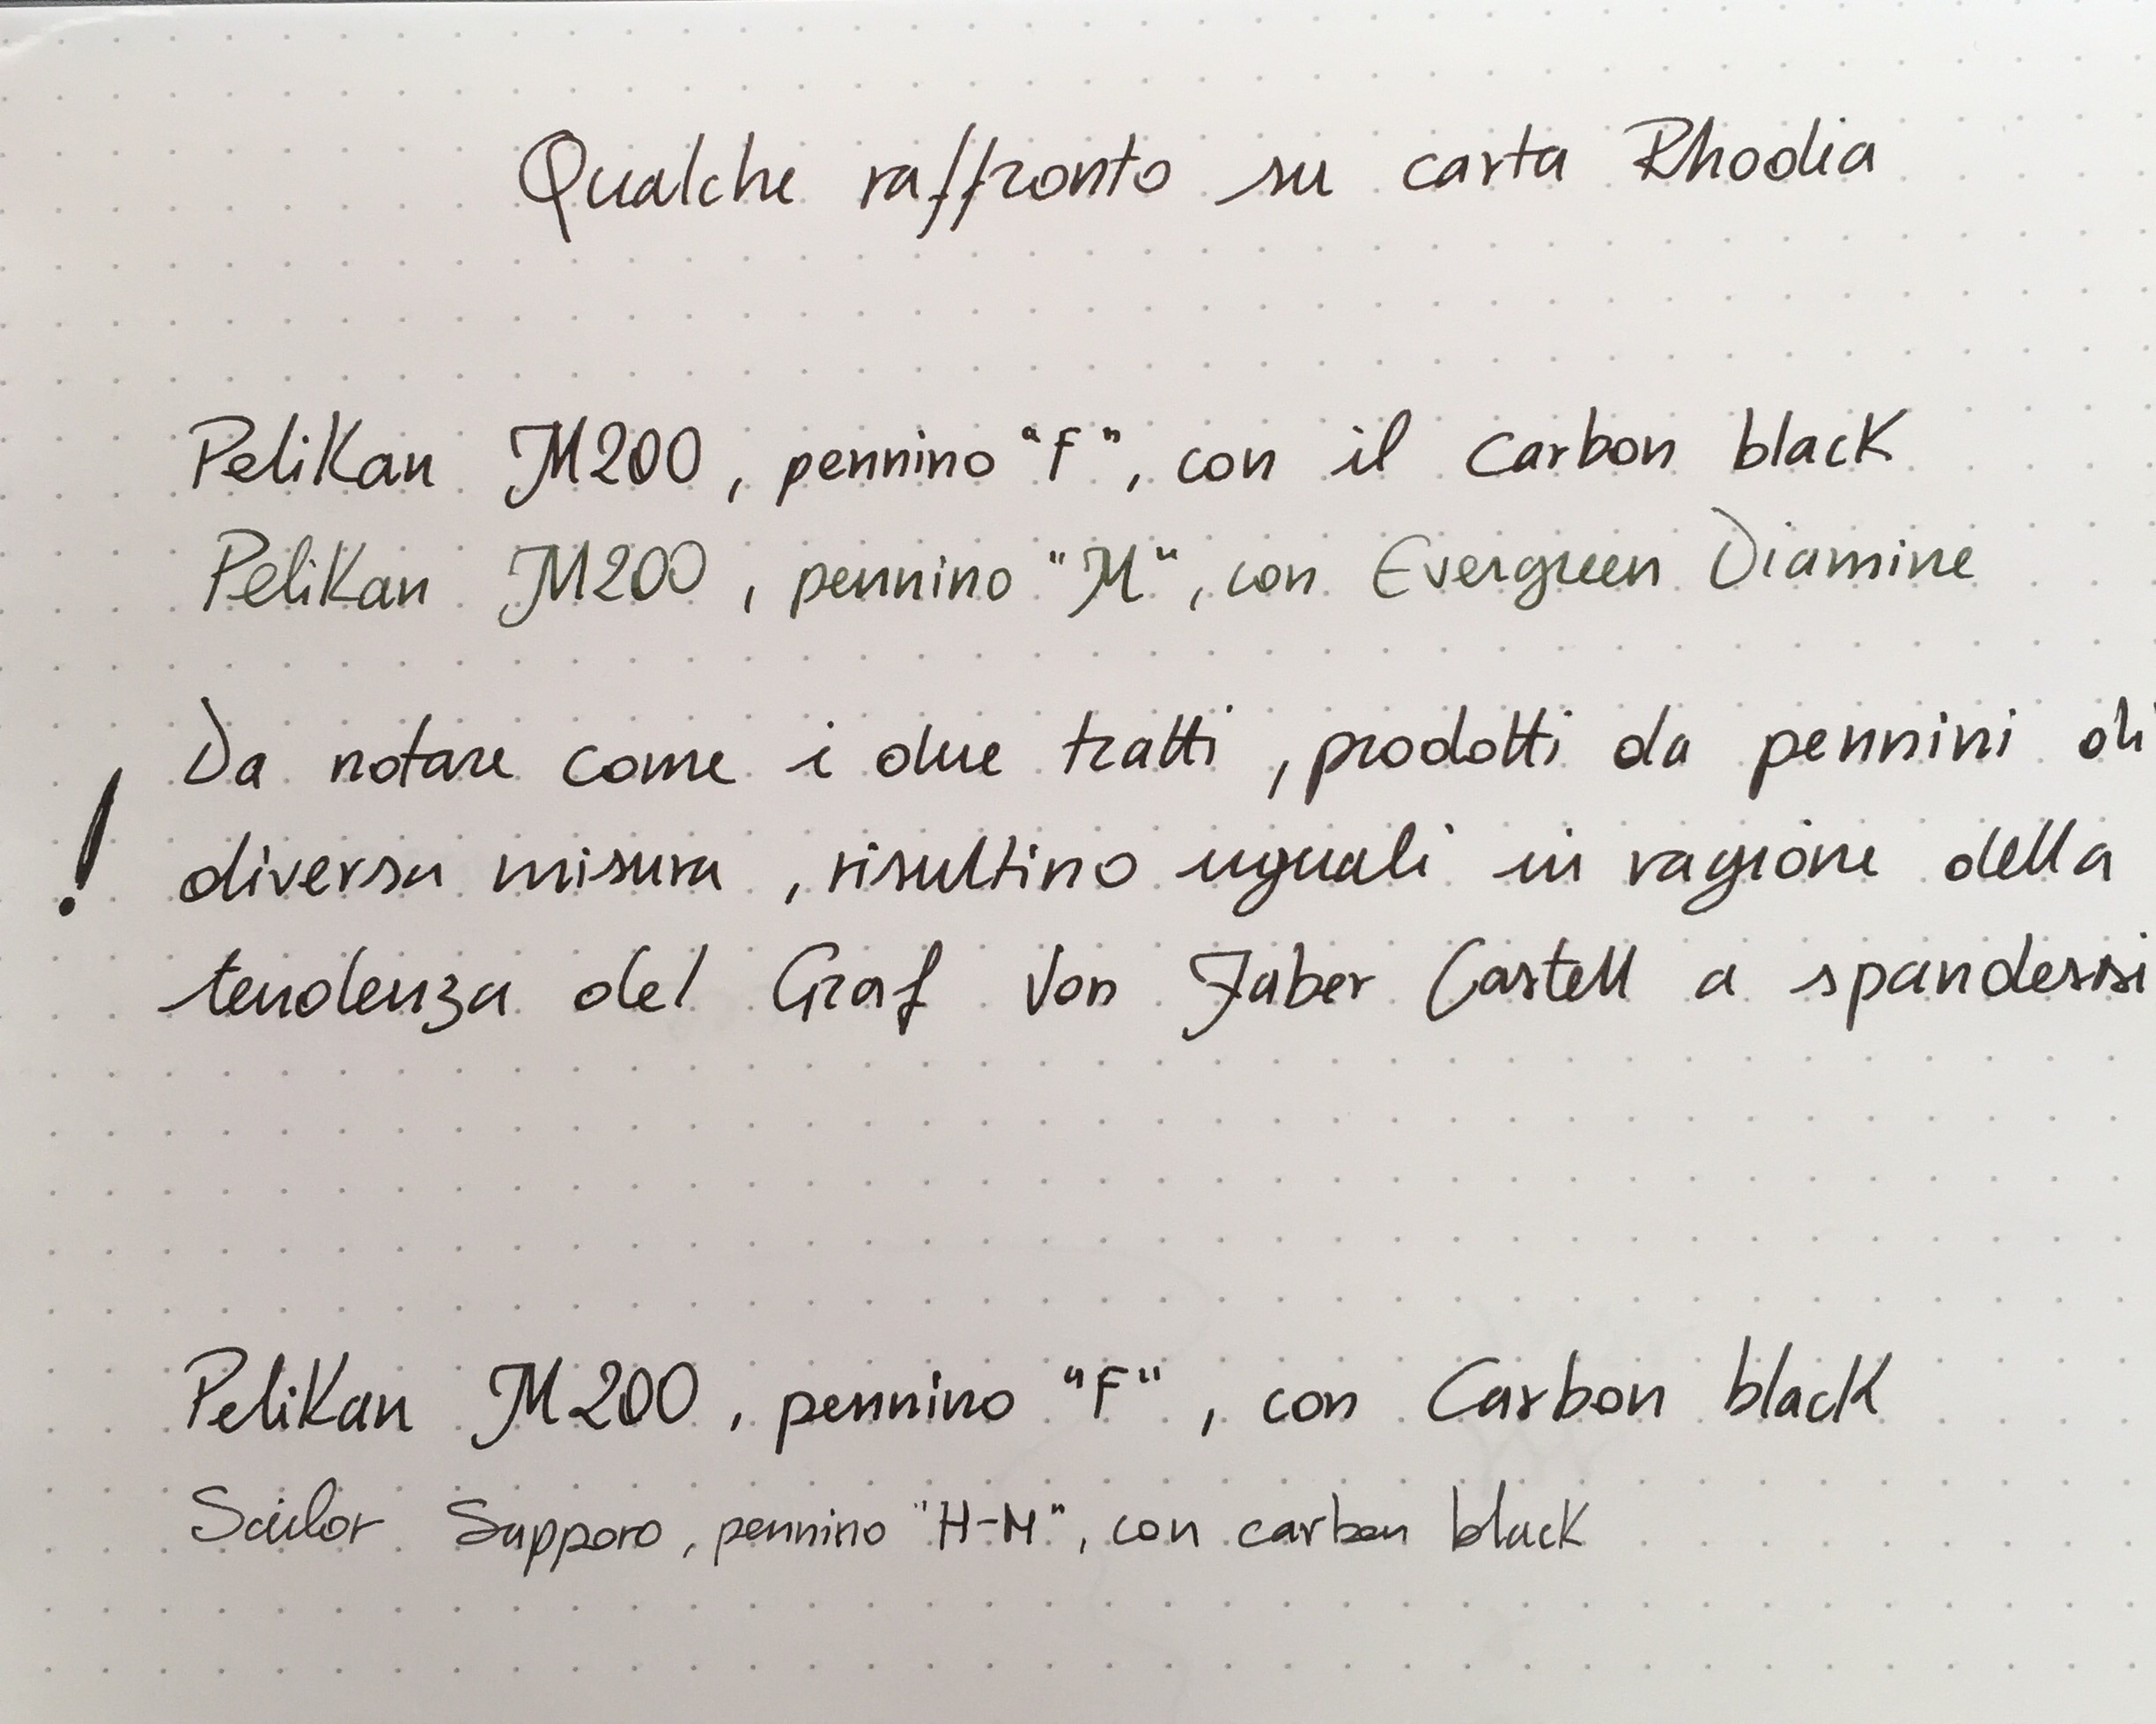 Qualche raffronto su carta Rhodia
Pelikan M200, pennino "F", con il carbon black
Pelikan M200, pennino "M", con Evergreen Diamine
Da notare come i due tratti, prodotti da pennini di
! diversa misura, risultino uguali in ragione della
tendenza del Graf Von Faber Castell a spandersi
Pelikan M200, pennino "F", con Carbon black
Sailor Sapporo, pennino "H-M", con carbon black